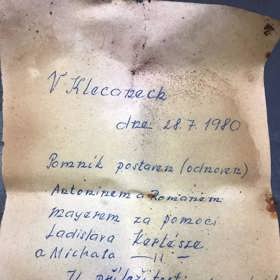 V Klecanech
dne 28.7.1980
Pomník postaven (odnoven)
Antonínem a Romanem
Mayerem za pomoci
Ladislava Kertésze
a Michala —〃—